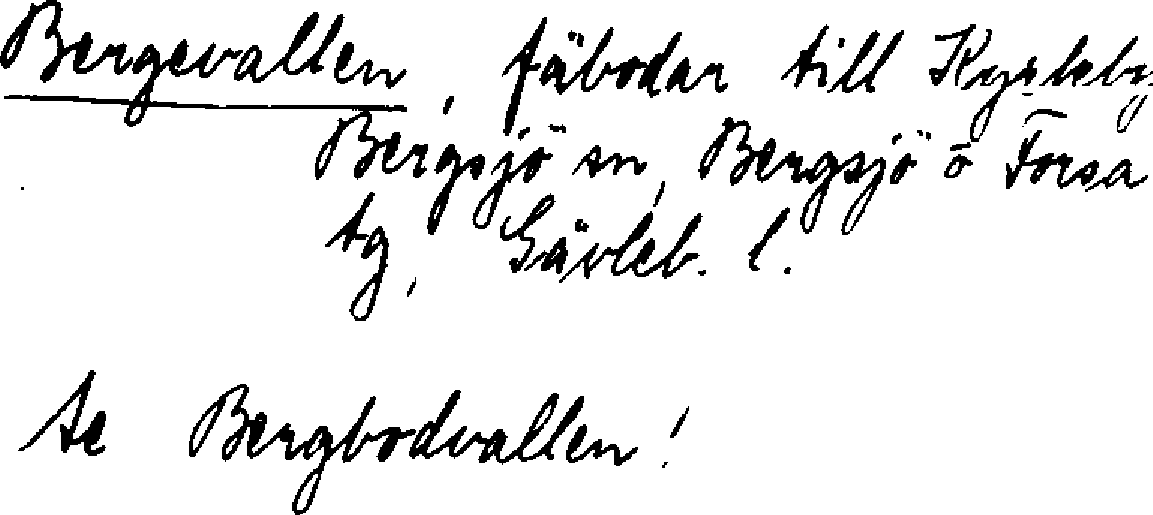 Bergevallen, fäbodar till Kyrkby
Bergsjö sn, Bergsjö o Forsa
tg, Gävleb. l.
se Bergbodvallen!